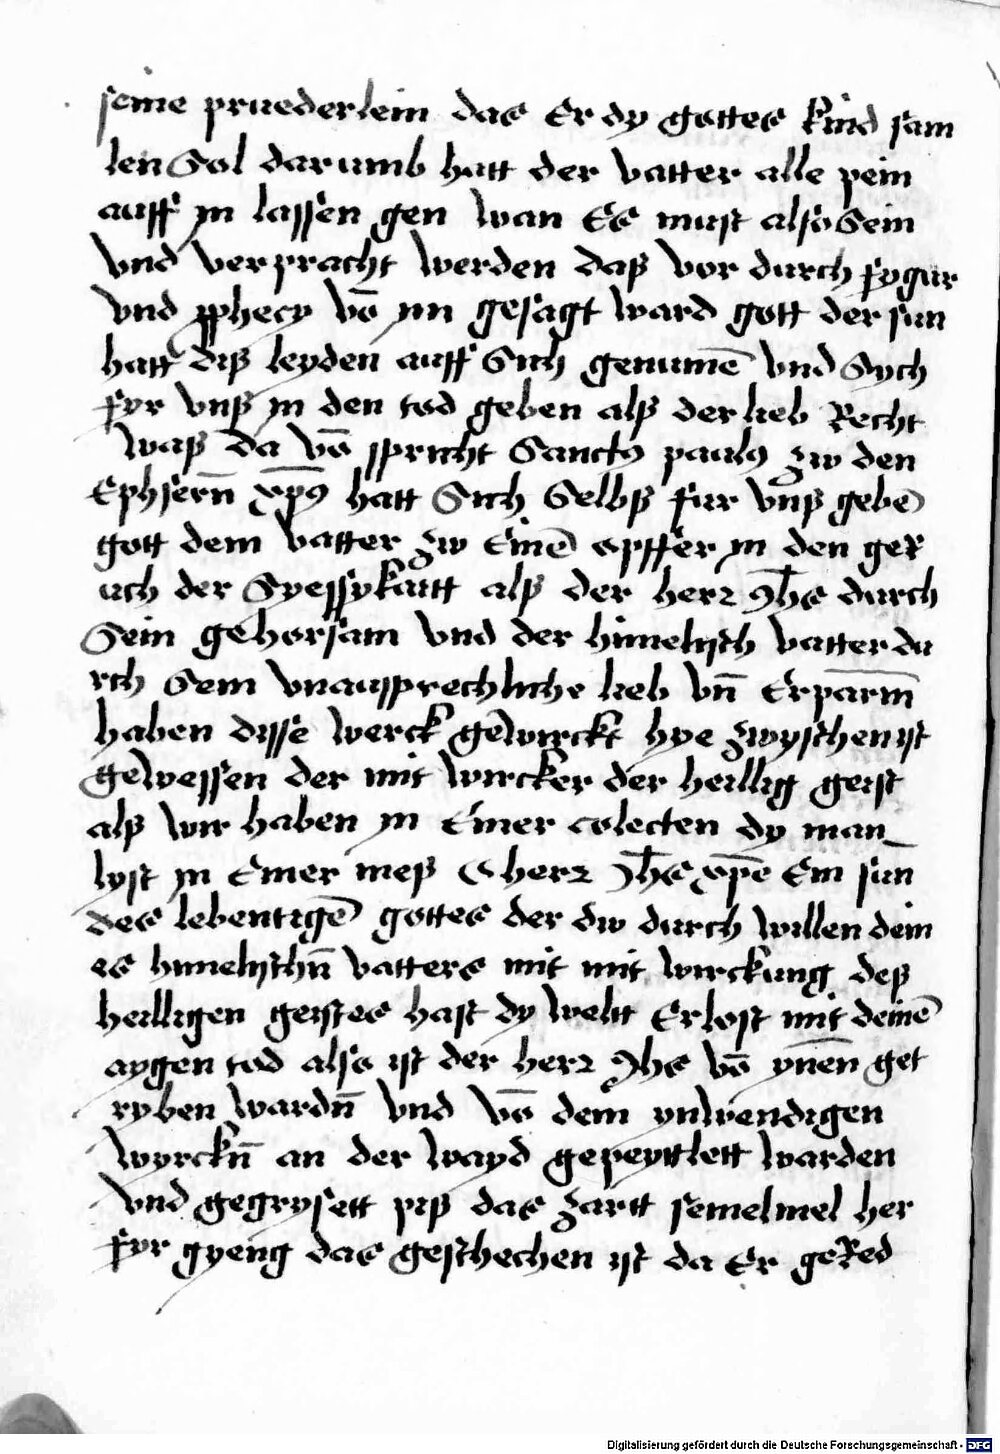 seine pruederlein das Er dy gottes kind sam
len Sol darumb hatt der vatter alle pein
auff jn lassen gen wan Es must also Sein
vnd verpracht werden daß vor durch fygur
vnd pphecy vō im gesagt ward gott der sun
hatt diß leyden auff Sich genumē vnd Sych
fyr vnß jn den tod geben alß der lieb Recht
waß da vō spricht Sanctꝰ paulꝰ zw den
Ephsern̄ xp̄ꝰ hatt Sich Selbß fur vnß gebē
gott dem vatter zw Einē opffer jn den geR
uch der Syessykaitt alß der herr Jh̄s durch
Sein gehorsam vnd der himelisch vatter du
rch Sein vnaussprechliche lieb vn̄ Erparm̄
haben disse werck gewirckt hye zwyschen ist
gewessen der mit wircker der heillig geist
alß wir haben jn Einer colecten dy man
lyst jn Einer meß O herr Jh̄s xp̄e Ein sun
des lebentigē gottes der dw durch willen dein
es himelischn̄ vatters mit mit wirckung deß
heilligen geistes hast dy weltt Erlost mit deinē
aygen tod also ist der herr Jhs vō ynen̄ get
ryben wardn̄ vnd vō dem ynwendigen
wyrckn̄ an der wayd gepeyttlett warden
vnd gegrysett piß das zartt semelmel her
fyr gyeng das geschechen ist da Er geRed